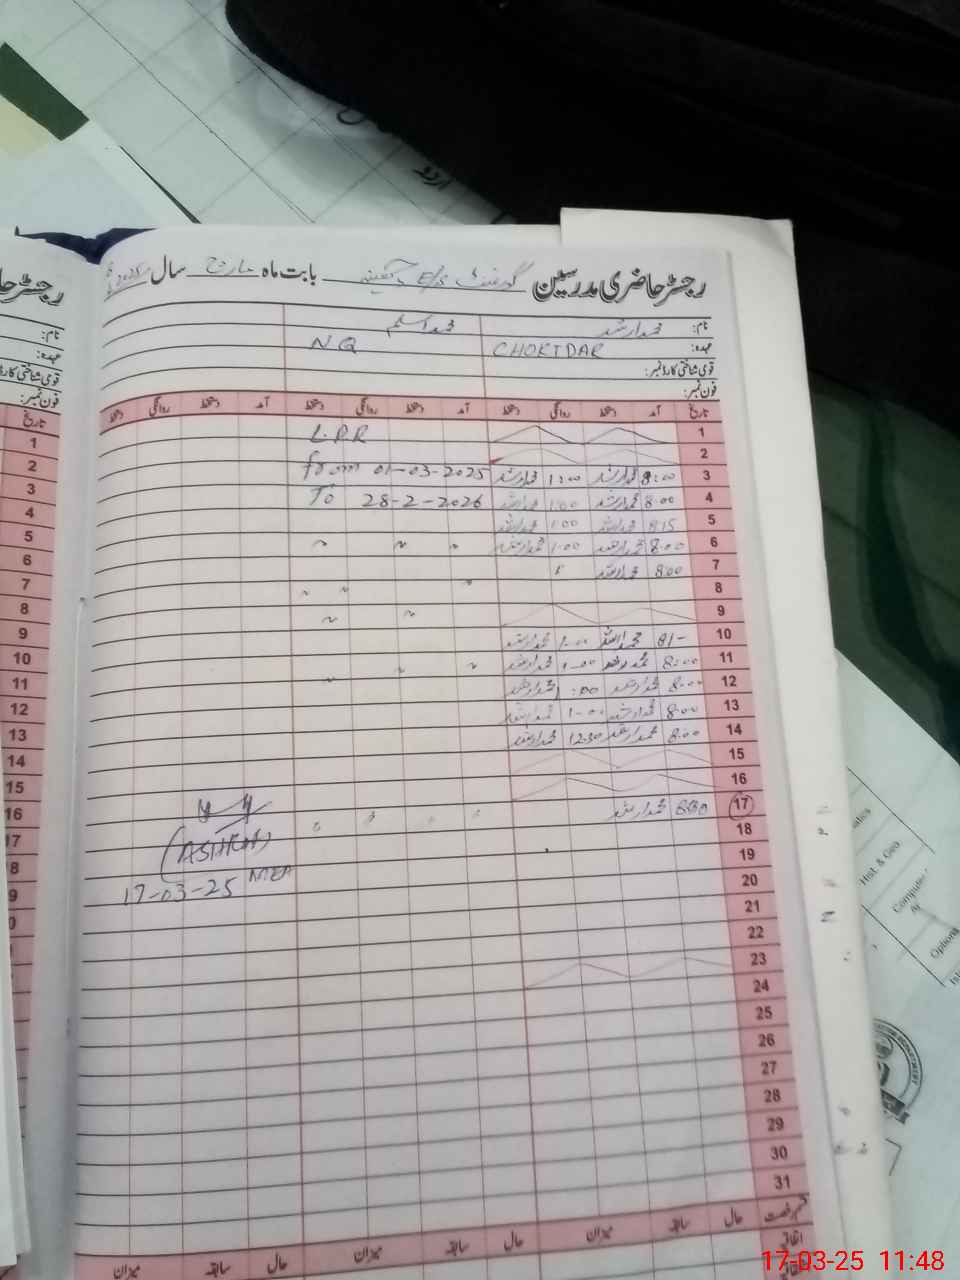 رجسٹر حاضری مدرسین گورنمنٹ E/S بابت ماہ مارچ سال 2025
نام: محمد ارشد محمد اسلم
عہدہ: CHOKIDAR N Q
قومی شناختی کارڈ نمبر:
فون نمبر:
تاریخ آمد دستخط روانگی دستخط آمد دستخط روانگی دستخط آمد دستخط روانگی دستخط
1 L.P.R
2
3 8:00 محمد ارشد 1:00 محمد ارشد from 01-03-2025
4 8:00 محمد ارشد 1:00 محمد ارشد To 28-2-2026
5 8:15 محمد ارشد 1:00 محمد ارشد
6 8:00 محمد ارشد 1:00 محمد ارشد
7 8:00 محمد ارشد
8
9
10 81- محمد ارشد 1-00 محمد ارشد
11 8:00 محمد ارشد 1-00 محمد ارشد
12 8:00 محمد ارشد :00 محمد ارشد
13 8-00 محمد ارشد 1-00 محمد ارشد
14 8:00 محمد ارشد 12:30 محمد ارشد
15
16
17 محمد ارشد
18
(ASHRAF)
19
MEA
17-03-25
20
21
22
23
24
25
26
27
28
29
30
31
قسم رخصت حال سابقہ میزان حال سابقہ میزان حال سابقہ میزان
اتفاقی
رجسٹر حا
نام:
عہدہ:
قومی شناختی کارڈ
فون نمبر:
تاریخ
1
2
3
4
5
6
7
8
9
10
11
12
13
14
15
16
17
8
9
0
اردو
Hist. & Geo
Computer
Option
17-03-25 11:48